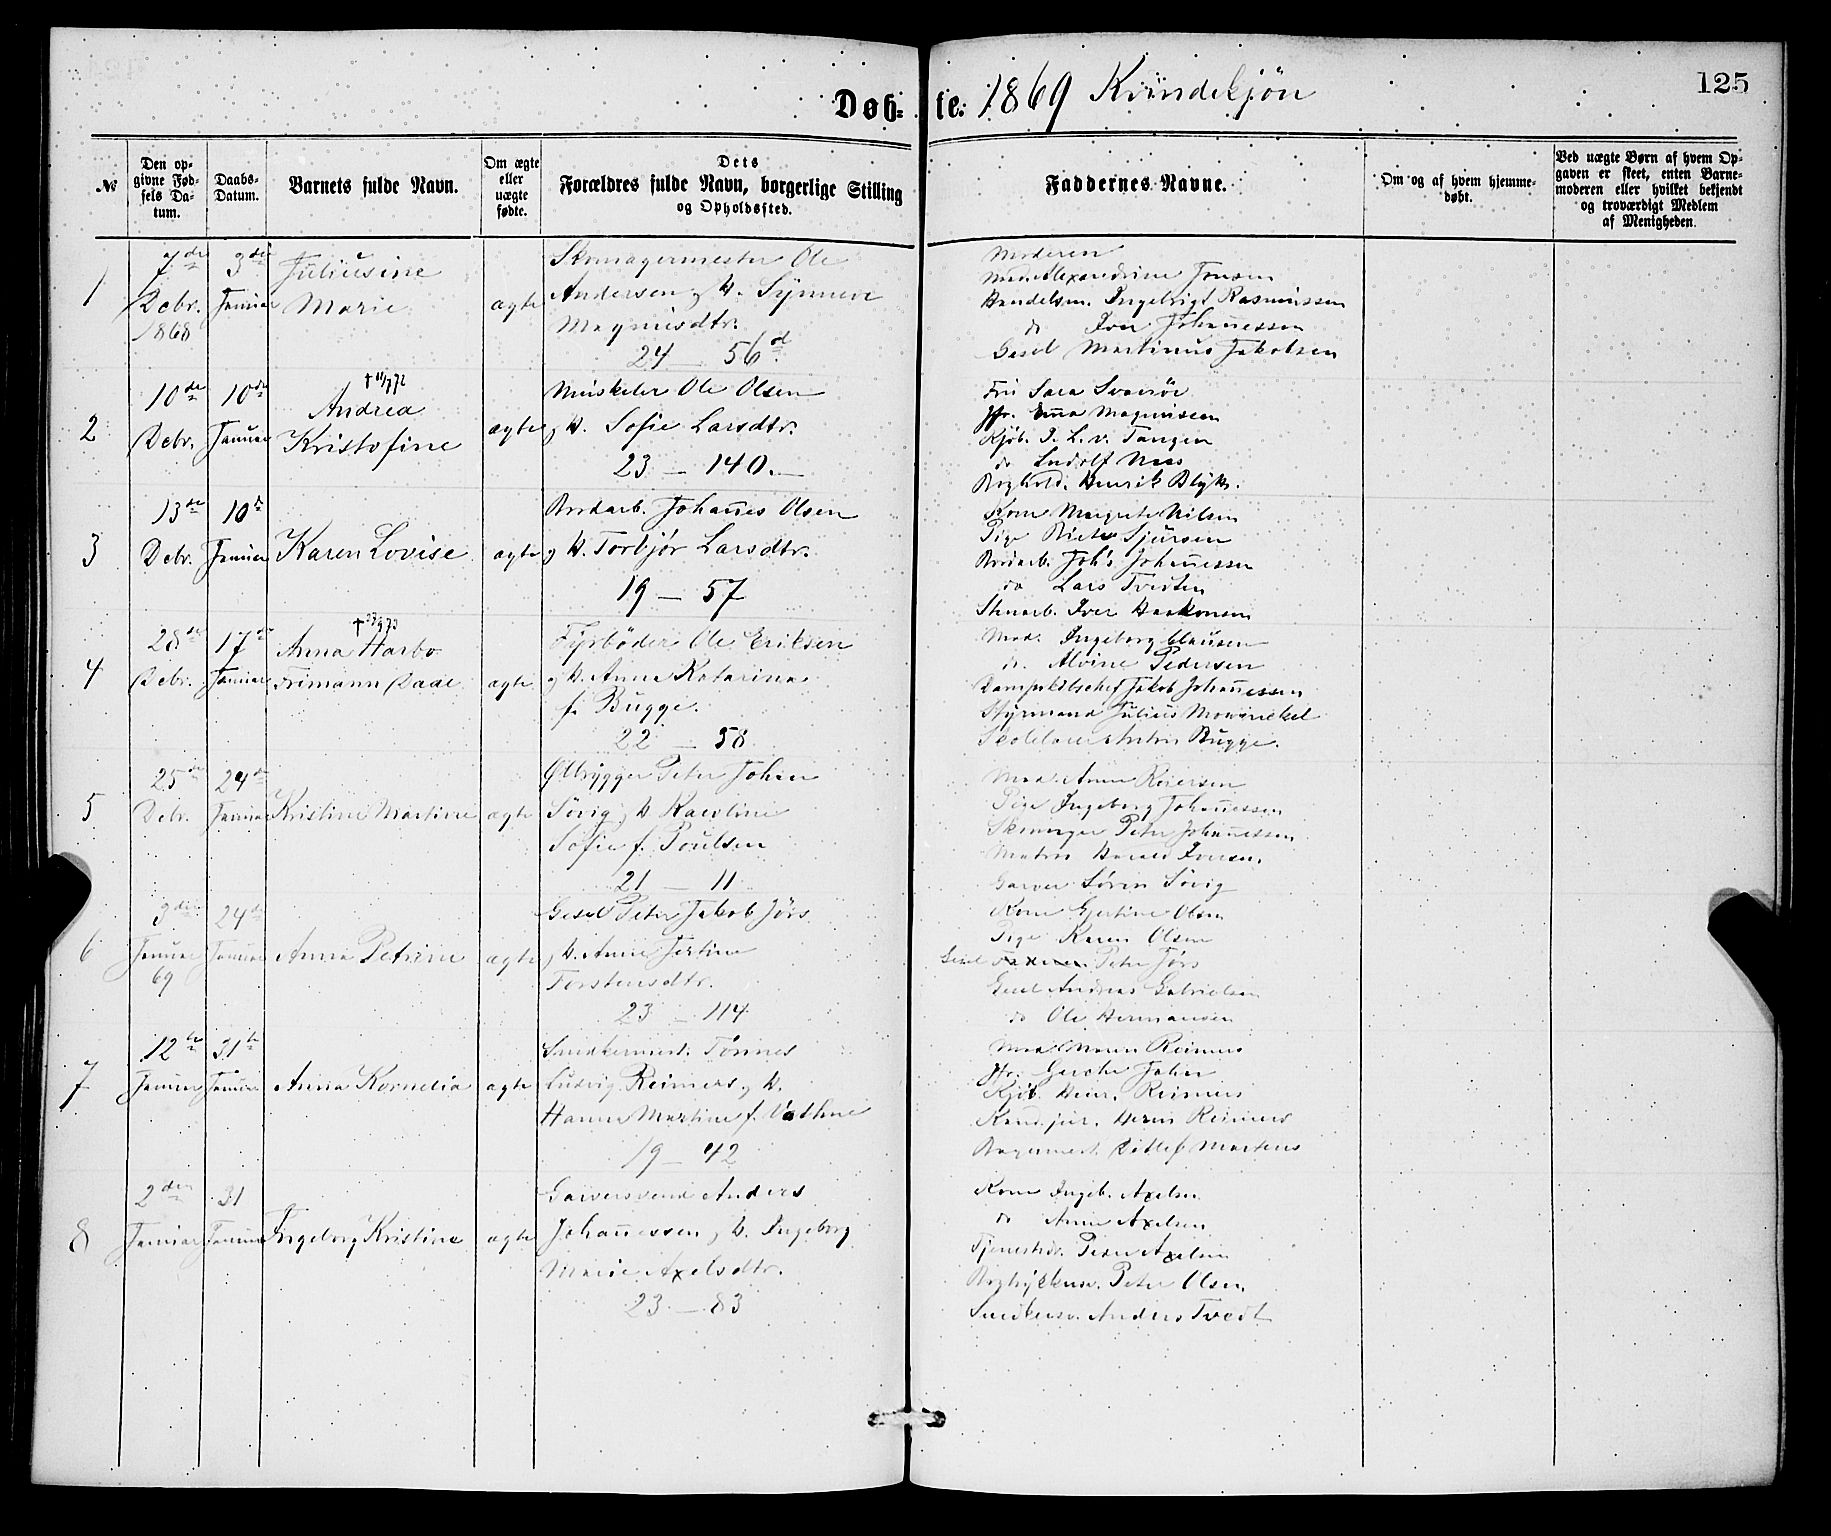 125
Døb- te. 1869 Kvindekjøn
№
Den op-
givne Fød-
sels Da-
tum.
Daabs-
Datum.
Barnets fulde Navn.
Om ægte
eller
uægte
fødte.
Dets
Forældres fulde Navn, borgerlige Stilling
og Opholdssted.
Faddernes Navne.
Om og af hvem hjemme-
døbt.
Ved uægte Børn af hvem Op-
gaven er skeet, enten Barne-
moderen eller hvilket bekjendt
og troværdigt Medlem
af Menigheden.
1
7de
Decbr.
1868
3die
Januar
Juliusine
Marie
ægte
Skomagermester Ole
Andersen og H. Synneve
Magnusdtr.
24 — 56 d.
Moderen
Mad. Alexandrine Jonsen
Handelsm. Ingebrigt Rasmussen
do Iver Johannessen
Gesel Martinus Jakobsen
2
10de
Debr.
10de
Januar
† 11/7 72
Andrea
Kristofine
ægte
Muskeler Ole Olsen
og H. Sofie Larsdtr.
23 — 140.—
Fru Sara
Jfr. Emma Magnusen
Kjöb. L. v. Tangen
do Ludolf
Boghold. Henrik
3
13de
Debr.
10de
Januar
Karen Lovise
ægte
Johannes Olsen
og H. Torbjør Larsdtr.
19 — 57
Kone Margrete Nilsen
Pige Sjursen
Johs Johannessen
do Lars Tvedten
Stuarb. Iver Haakonsen
4
28de
Debr.
17de
Januar
Anna Harbo
Frimann Daae
ægte
Fyrbøder Ole Eriksen
og H. Anna Katarina
f. Bugge.
22 — 58
Mad. Ingeborg Clausen
do. Alvine Pedersen
Jakob Johannessen
Styrmand Julius Mowinckel
Bugge.
5
25de
Debr.
24de
Januar
Kristine Martine
ægte
Ølbrygger Peter Johan
Søvig og H. Karoline
Sofie f. Poulsen
21 — 11
Mad. Anna Reiersen
Pige Ingeborg Johannessen
Skomager Peter Johannessen
Matros Harald Iversen
Garver Sören Søvig
6
3die
Januar
69
24de
Januar
Anna Petrine
ægte
Gesel Peter Jakob Jörs
og H. Anne Jertine
Torstensdtr.
23 — 114
Kone Gjertine Olsen
Pige Karen Olsen
Gesel Peter Jörs
Gesel Andreas Gabrielsen
do Ole Hermansen
7
12te
Januar
31te
Januar
Anna Kornelia
ægte
Snedkermest. Tönnes
Ludvig Reimers og H.
Hanna Martine f. Vathne
19 — 42
Mad. Maren Reimers
Jfr. Gerche Jahn
Kjöb. Heinr. Reimers
Kand. jur. Herm Reimers
Bagermest. Ditlef Martens
8
2den
Januar
31
Januar
Ingeborg Kristine
ægte
Garversvend Anders
Johannessen og H. Ingeborg
Marie Axelsdtr.
23 — 83
Kone Ingeb. Axelsen
do Anne Axelsen
Tjenestedr. Peder Axelsen
Bogtrykkersv. Peter Olsen
Snedkersv. Anders Tvedt